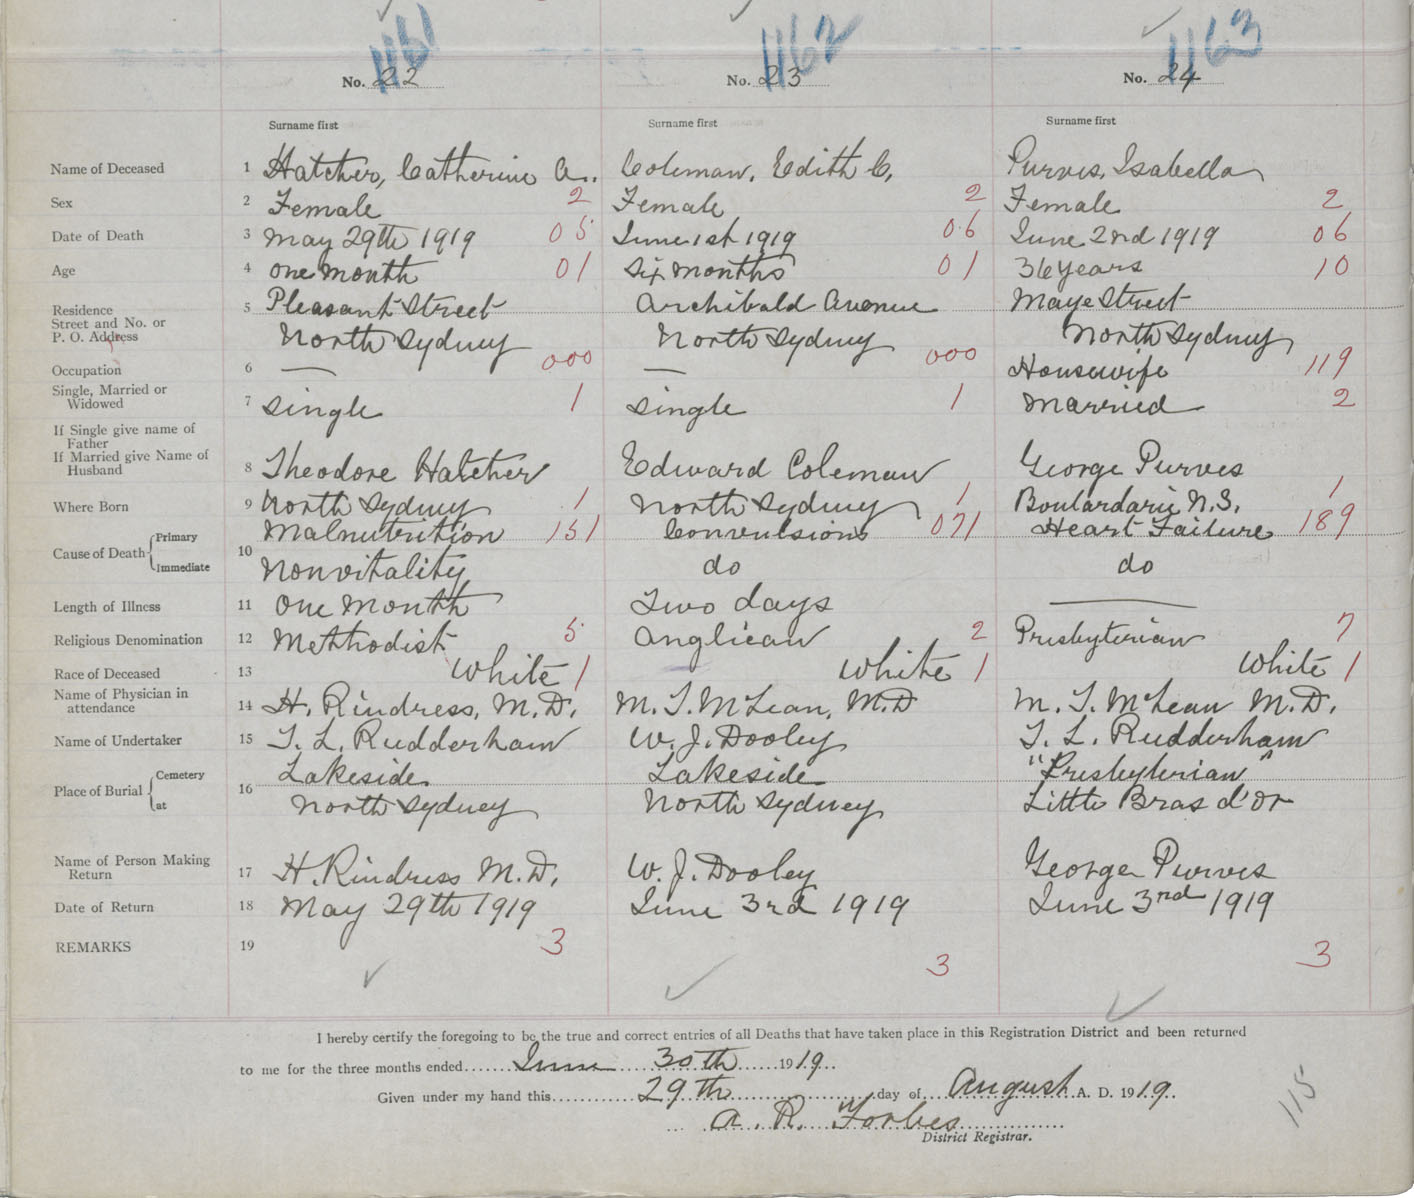 1161 1162 1163
No. 22 No. 23 No. 24
Surname first Surname first Surname first
Name of Deceased 1 Hatcher, Catherine A. Coleman, Edith C. Purves, Isabella
Sex 2 Female 2 Female 2 Female 2
Date of Death 3 May 29th 1919 05 June 1st 1919 06 June 2nd 1919 06
Age 4 one month 01 Six months 01 36 years 10
Residence
Street and No. or 5 Pleasant Street Archibald Avenue Maye Street
P. O. Address North Sydney North Sydney North Sydney
Occupation 6 — 000 — 000 Housewife 119
Single, Married or
Widowed 7 Single 1 Single 1 Married 2
If Single give name of
Father
If Married give Name of
Husband 8 Theodore Hatcher Edward Coleman George Purves
Where Born 9 North Sydney 1 North Sydney 1 Boulardarie N.S. 1
Cause of Death Primary Malnutrition 151 Convulsions 071 Heart Failure 189
Immediate 10 Nonvitality do do
Length of Illness 11 One Month Two days —
Religious Denomination 12 Methodist 5 Anglican 2 Presbyterian 7
Race of Deceased 13 White 1 White 1 White 1
Name of Physician in
attendance 14 H. Rindress, M.D. M. T. McLean, M.D M. T. McLean M.D.
Name of Undertaker 15 T. L. Rudderham W. J. Dooley T. L. Rudderham
Place of Burial Cemetery 16 Lakeside Lakeside "Presbyterian"
at North Sydney North Sydney Little Bras d'Or
Name of Person Making
Return 17 H. Rindress M.D. W. J. Dooley George Purves
Date of Return 18 May 29th 1919 June 3rd 1919 June 3rd 1919
REMARKS 19 3 3 3
I hereby certify the foregoing to be the true and correct entries of all Deaths that have taken place in this Registration District and been returned
to me for the three months ended June 30th 1919.
Given under my hand this 29th day of August A. D. 1919.
A. R. Forbes
District Registrar.
115